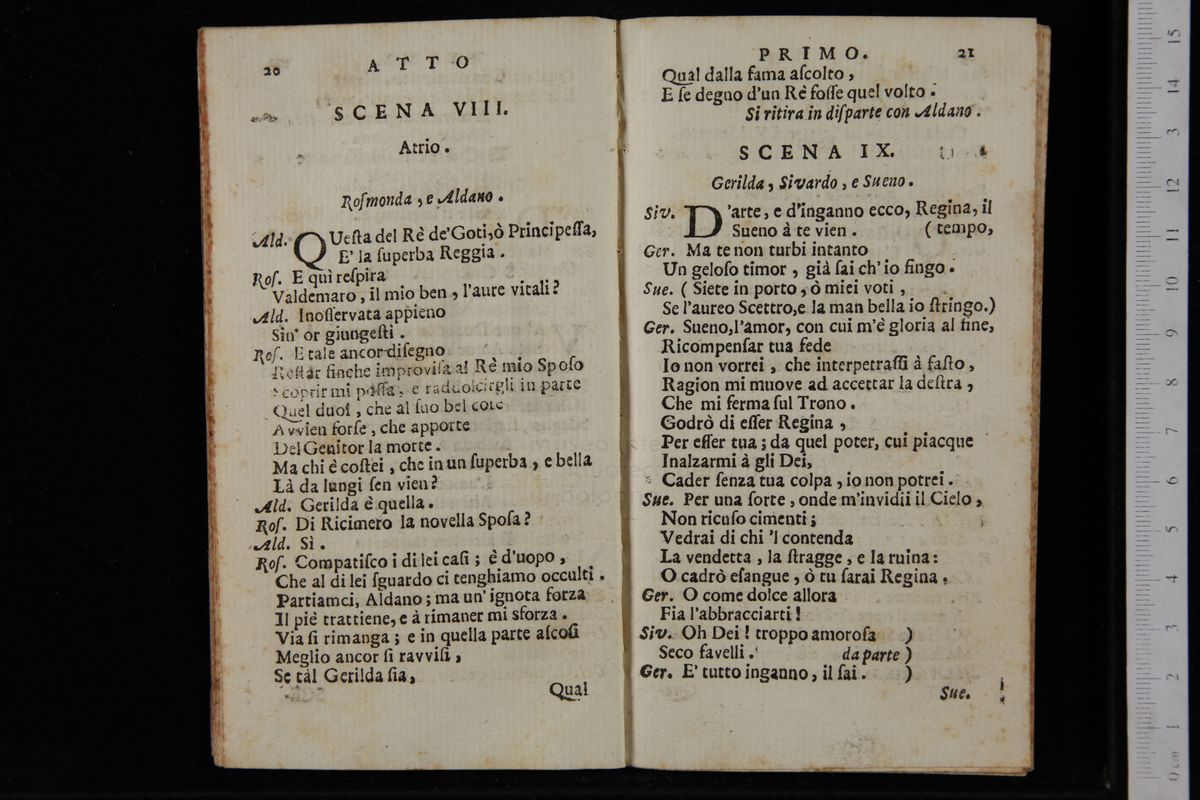 20 ATTO
SCENA VIII.
Atrio.
Roſmonda, e Aldano.
Ald. QUeſta del Rè de'Goti,ò Principeſſa,
E' la ſuperba Reggia.
Roſ. E quì reſpira
Valdemaro, il mio ben, l'aure vitali?
Ald. Inoſſervata appieno
Sin' or giungeſti.
Roſ. E tale ancor diſegno
Reſtar finche improviſa al Rè mio Spoſo
Scoprir mi poſſa, e raddolcirgli in parte
Quel duol, che al ſuo bel core
Avvien forſe, che apporte
Del Genitor la morte.
Ma chi è coſtei, che in un ſuperba, e bella
Là da lungi ſen vien?
Ald. Gerilda è quella.
Roſ. Di Ricimero la novella Spoſa?
Ald. Sì.
Roſ. Compatiſco i di lei caſi; è d'uopo,
Che al di lei ſguardo ci tenghiamo occulti.
Partiamci, Aldano; ma un' ignota forza
Il piè trattiene, e à rimaner mi sforza.
Via ſi rimanga; e in quella parte aſcoſi
Meglio ancor ſi ravviſi,
Se tàl Gerilda ſia,
Qual
PRIMO. 21
Qual dalla fama aſcolto,
E ſe degno d'un Rè foſſe quel volto.
Si ritira in diſparte con Aldano.
SCENA IX.
Gerilda, Sivardo, e Sueno.
Siv. D'arte, e d'inganno ecco, Regina, il
Sueno à te vien. ( tempo,
Ger. Ma te non turbi intanto
Un geloſo timor, già ſai ch' io fingo.
Sue. ( Siete in porto, ò miei voti,
Se l'aureo Scettro,e la man bella io ſtringo.)
Ger. Sueno,l'amor, con cui m'è gloria al fine,
Ricompenſar tua fede
Io non vorrei, che interpetraſſi à faſto,
Ragion mi muove ad accettar la deſtra,
Che mi ferma ſul Trono.
Godrò di eſſer Regina,
Per eſſer tua; da quel poter, cui piacque
Inalzarmi à gli Dei,
Cader ſenza tua colpa, io non potrei.
Sue. Per una ſorte, onde m'invidii il Cielo,
Non ricuſo cimenti;
Vedrai di chi 'l contenda
La vendetta, la ſtragge, e la ruina:
O cadrò eſangue, ò tu ſarai Regina.
Ger. O come dolce allora
Fia l'abbracciarti!
Siv. Oh Dei! troppo amoroſa )
Seco favelli. da parte )
Ger. E' tutto inganno, il ſai. )
Sue.
15
14
13
12
11
10
9
8
7
6
5
4
3
2
1
0 cm